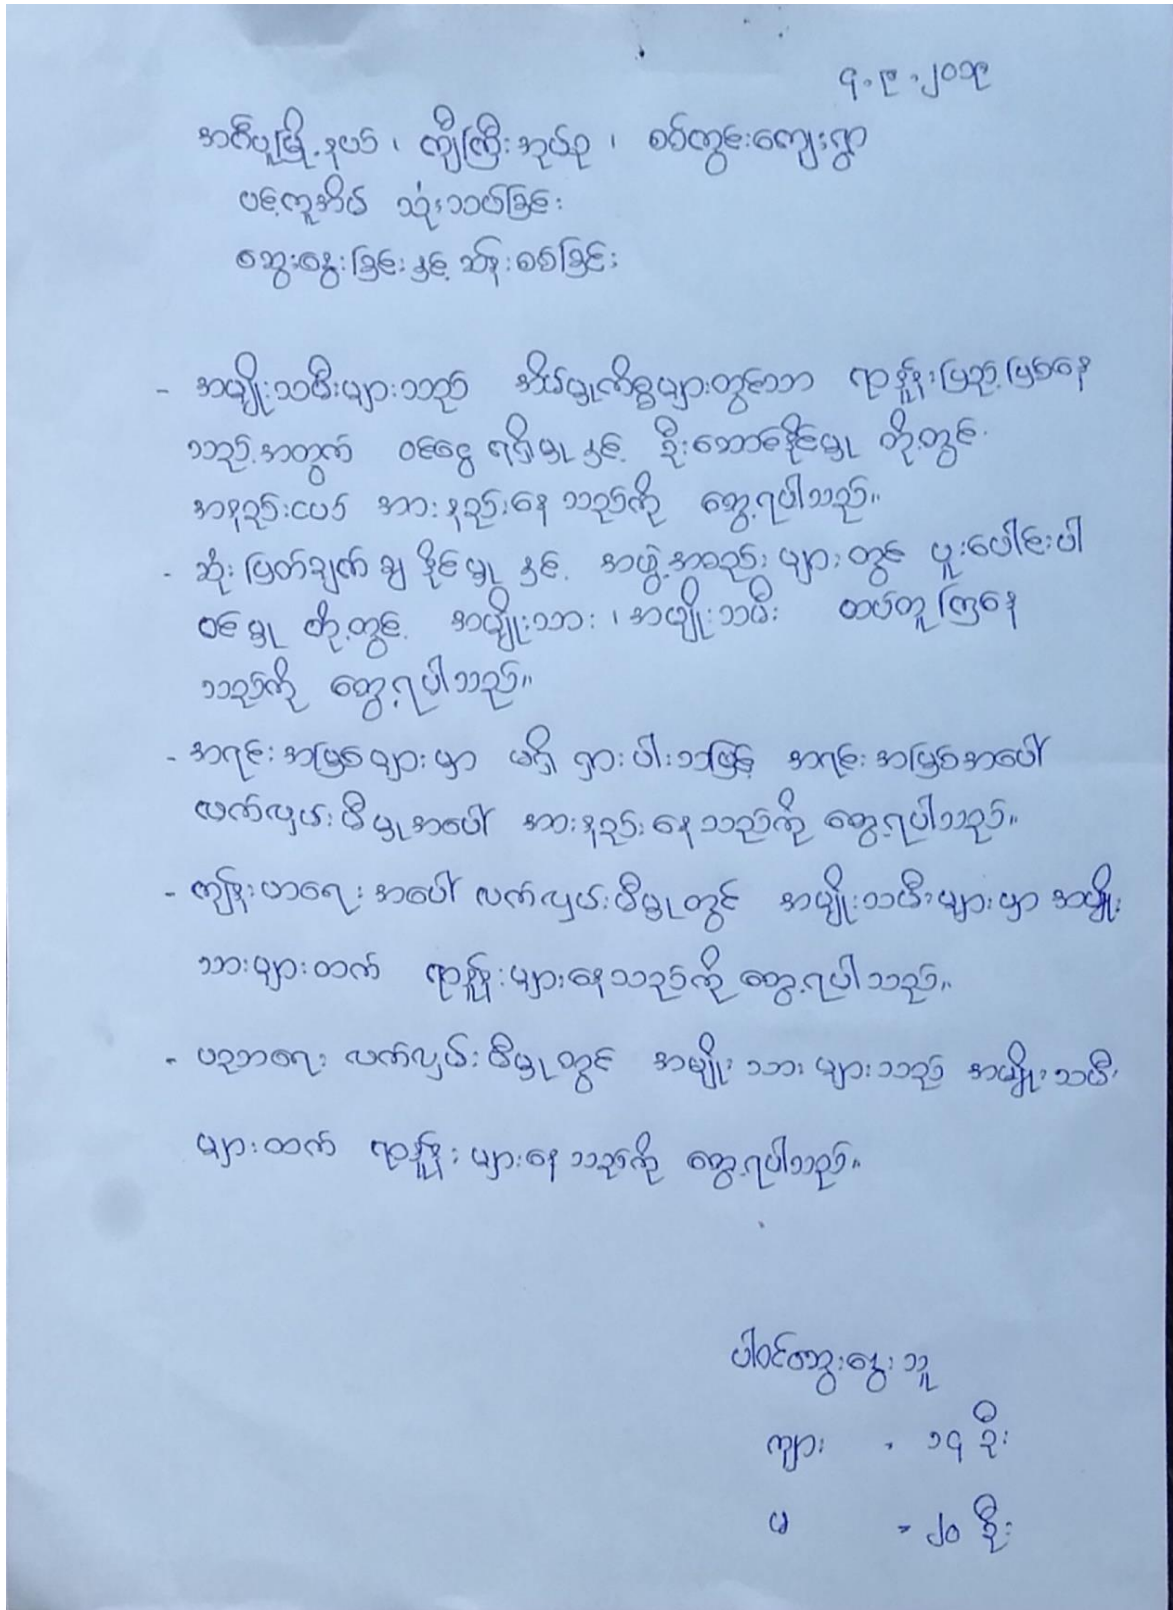 ၄.၉.၂၀၁၉
အင်္ဂပူမြို့နယ် ၊ ကျီကြီးအုပ်စု ၊ စစ်ကွင်းကျေးရွာ
ပင့်ကူအိမ် သုံးသပ်ခြင်း
ဆွေးနွေးခြင်းနှင့် ဆန်းစစ်ခြင်း
- အမျိုးသမီးများသည် အိမ်မှုကိစ္စများတွင်သာ ရာနှုန်းပြည့်ဖြစ်နေ
သည့်အတွက် ဝင်ငွေ ရရှိမှုနှင့် ဦးဆောင်နိုင်မှု တို့တွင်
အနည်းငယ် အားနည်းနေသည်ကို တွေ့ရပါသည်။
- ဆုံးဖြတ်ချက်ချနိုင်မှုနှင့် အဖွဲ့အစည်းများတွင် ပူးပေါင်းပါ
ဝင်မှု တို့တွင် အမျိုးသား ၊ အမျိုးသမီး ထပ်တူကြနေ
သည်ကို တွေ့ရပါသည်။
- အရင်းအမြစ်များမှာ မရှိ ရှားပါးသဖြင့် အရင်းအမြစ်အပေါ်
လက်လှမ်းမီမှုအပေါ် အားနည်းနေသည်ကို တွေ့ရပါသည်။
- ကျန်းမာရေးအပေါ် လက်လှမ်းမီမှုတွင် အမျိုးသမီးများမှာ အမျိုး
သားများထက် ရာနှုန်းများနေသည်ကို တွေ့ရပါသည်။
- ပညာရေး လက်လှမ်းမီမှုတွင် အမျိုးသားများသည် အမျိုးသမီး
များထက် ရာနှုန်းများနေသည်ကို တွေ့ရပါသည်။
ပါဝင်ဆွေးနွေးသူ
ကျား - ၁၄ ဦး
မ - ၂၀ ဦး